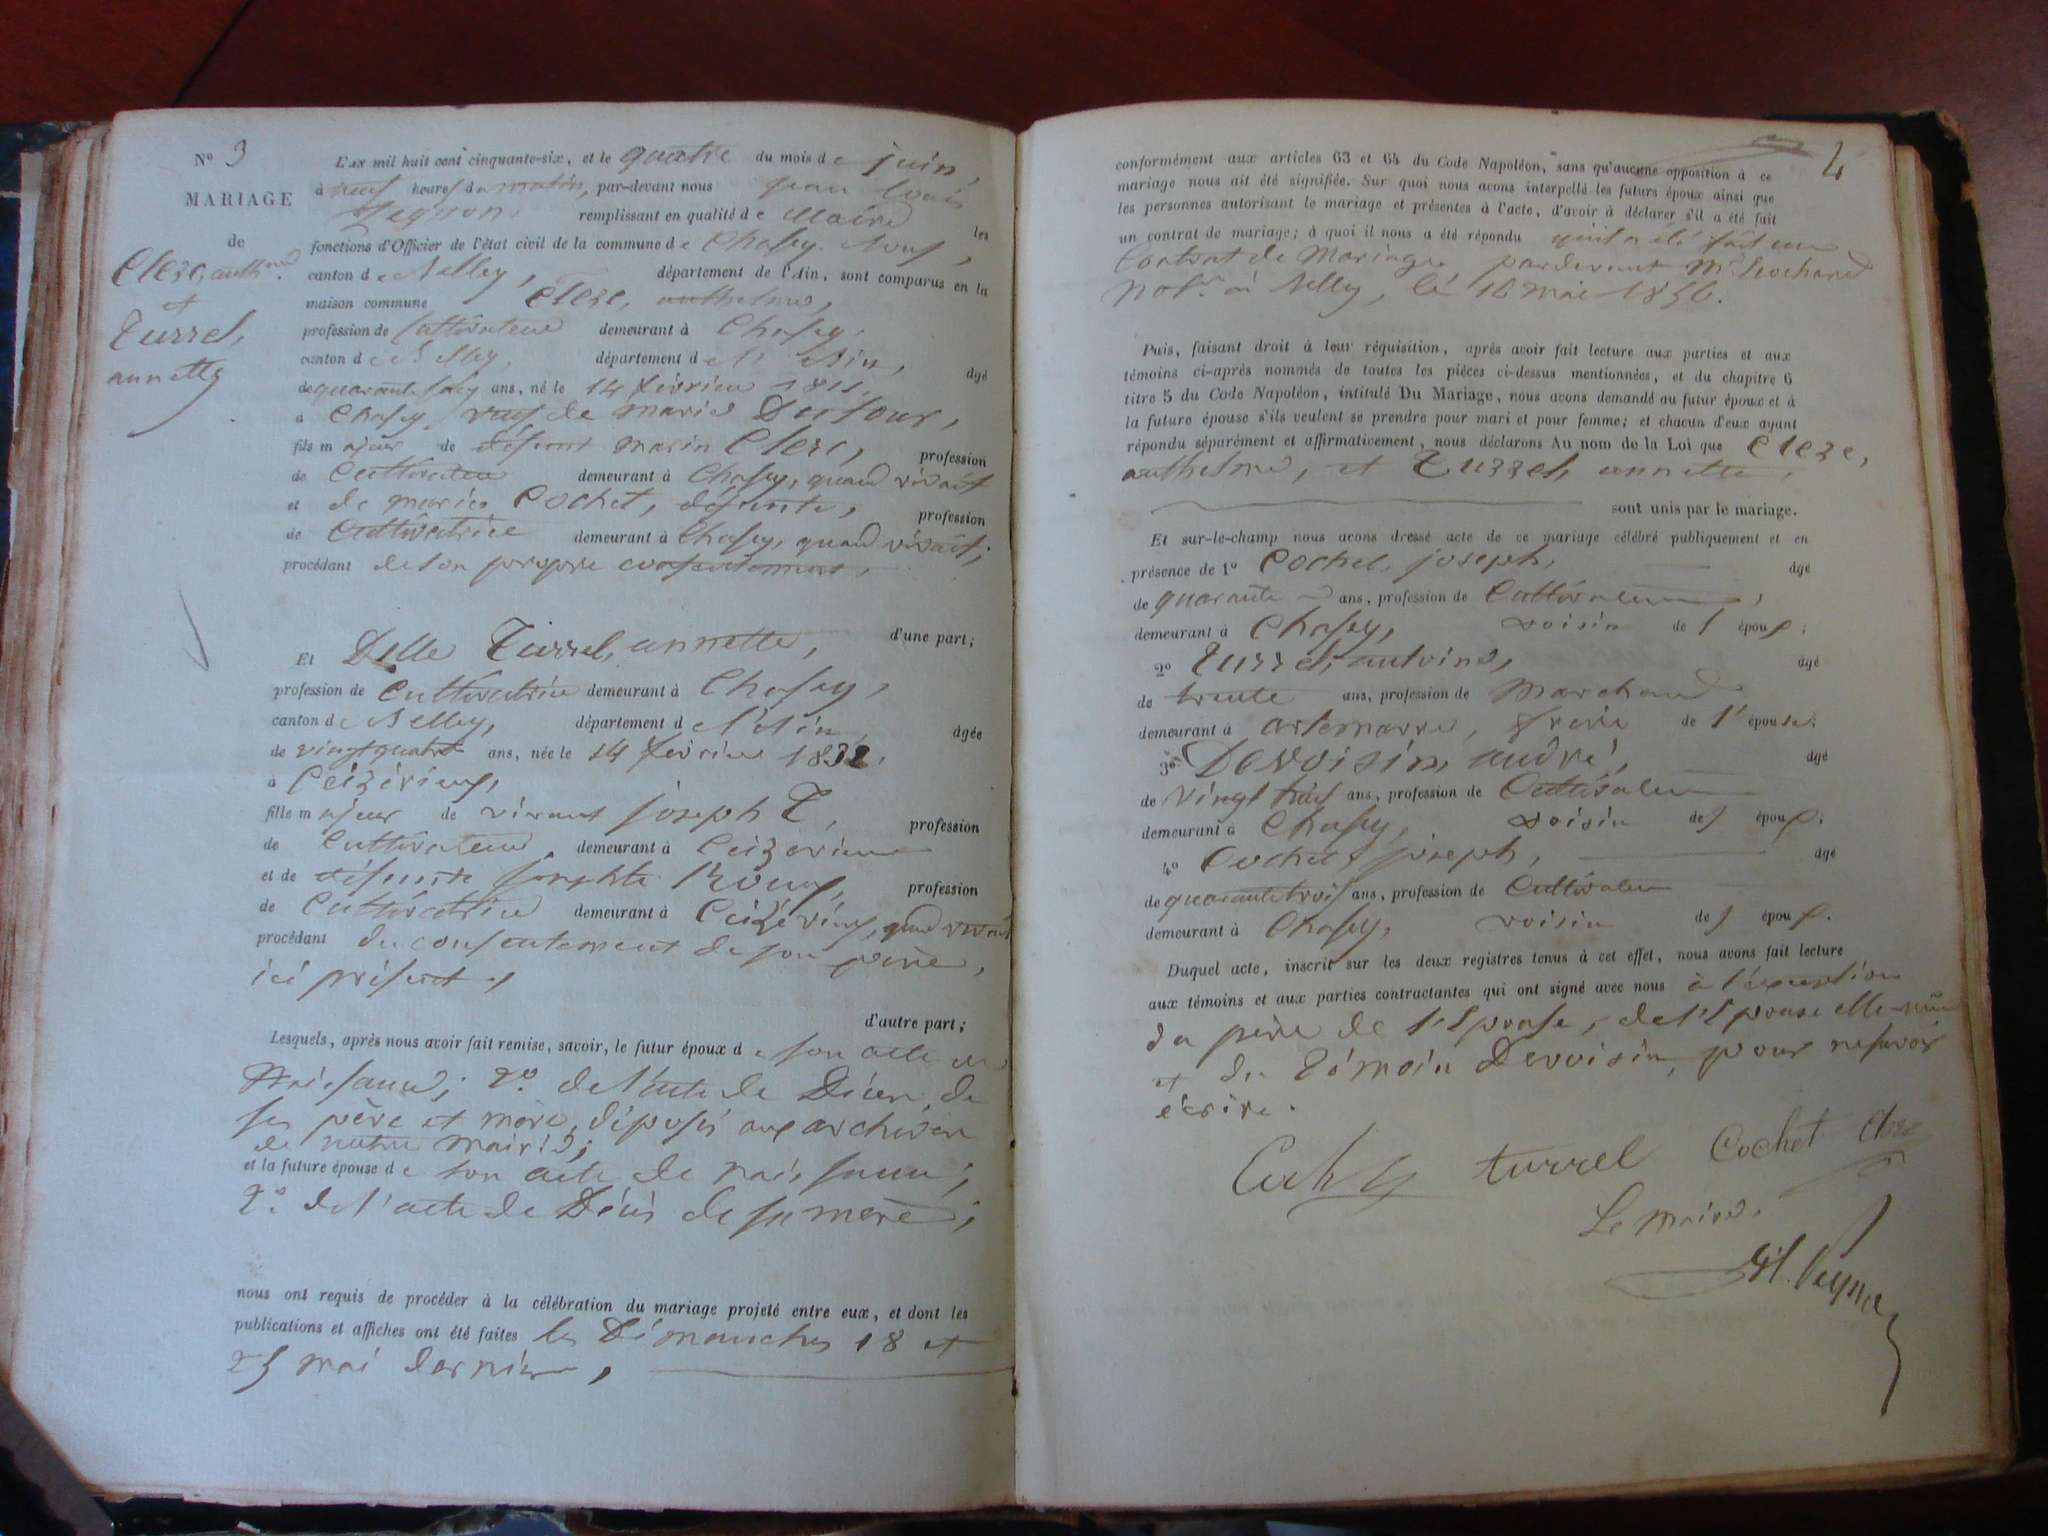 N° 3
MARIAGE
de
Clerc, anth.
et
Turrel,
annette
L'AN mil huit cent cinquante-six, et le quatre du mois de juin,
à neuf heures du matin, par-devant nous jean louis
remplissant en qualité de Maire les
fonctions d'Officier de l'état civil de la commune de Chasey-
canton de Belley, département de l'Ain, sont comparus en la
maison commune Clerc, anthelme,
profession de Cultivateur demeurant à Chasey,
canton de Belley, département de l'Ain, âgé
de quarante cinq ans, né le 14 février 1811,
à Chasey, veuf de marie Dufour,
fils majeur de défunt marin Clerc, profession
de Cultivateur demeurant à Chasey, quand vivait
et de marie Cochet, défunte, profession
de Cultivatrice demeurant à Chasey, quand vivait;
procédant de son propre consentement,
d'une part;
Et Delle Turrel, annette,
profession de Cultivatrice demeurant à Chasey,
canton de Belley, département de l'Ain, âgée
de vingt quatre ans, née le 14 février 1832,
à Ceizérieux,
fille majeur de vivant joseph T, profession
de Cultivateur demeurant à Ceizerieu
et de défunte Roux, profession
de Cultivatrice demeurant à Ceizérieux, quand vivait
procédant du consentement de son père,
ici présent,
d'autre part;
Lesquels, après nous avoir fait remise, savoir, le futur époux de son acte de
Naissance; 2° de l'acte de Décès de
ses père et mère, déposés aux archives
de notre mairie;
et la future épouse de son acte de naissance;
2° de l'acte de Décès de sa mère;
nous ont requis de procéder à la célébration du mariage projeté entre eux, et dont les
publications et affiches ont été faites les Dimanches 18 et
25 mai dernier,
4
conformément aux articles 63 et 64 du Code Napoléon, sans qu'aucune opposition à ce
mariage nous ait été signifiée. Sur quoi nous avons interpellé les futurs époux ainsi que
les personnes autorisant le mariage et présentes à l'acte, d'avoir à déclarer s'il a été fait
un contrat de mariage; à quoi il nous a été répondu qu'il a été fait un
Contrat de Mariage pardevant Me
Notre à Belley, le 16 mai 1856.
Puis, faisant droit à leur réquisition, après avoir fait lecture aux parties et aux
témoins ci-après nommés de toutes les pièces ci-dessus mentionnées, et du chapitre 6
titre 5 du Code Napoléon, intitulé Du Mariage, nous avons demandé au futur époux et à
la future épouse s'ils veulent se prendre pour mari et pour femme; et chacun d'eux ayant
répondu séparément et affirmativement, nous déclarons Au nom de la Loi que Clerc,
anthelme, et Turrel, annette,
sont unis par le mariage.
Et sur-le-champ nous avons dressé acte de ce mariage célébré publiquement et en
présence de 1° Cochet, joseph, âgé
de quarante ans, profession de Cultivateur,
demeurant à Chasey, voisin de l'époux;
2° Turrel, antoine, âgé
de trente ans, profession de Marchand
demeurant à artemarre, frère de l'épouse;
3° Devoisin, andré, âgé
de vingt ans, profession de Cultivateur
demeurant à Chasey, voisin de l'époux;
4° Cochet, joseph, âgé
de quarante trois ans, profession de Cultivateur
demeurant à Chasey, voisin de l'époux.
Duquel acte, inscrit sur les deux registres tenus à cet effet, nous avons fait lecture
aux témoins et aux parties contractantes qui ont signé avec nous à l'exception
du père de l'Epouse, de l'Epouse elle-même
et du témoin Devoisin, pour ne savoir
écrire.
turrel Cochet Clerc
Le Maire.